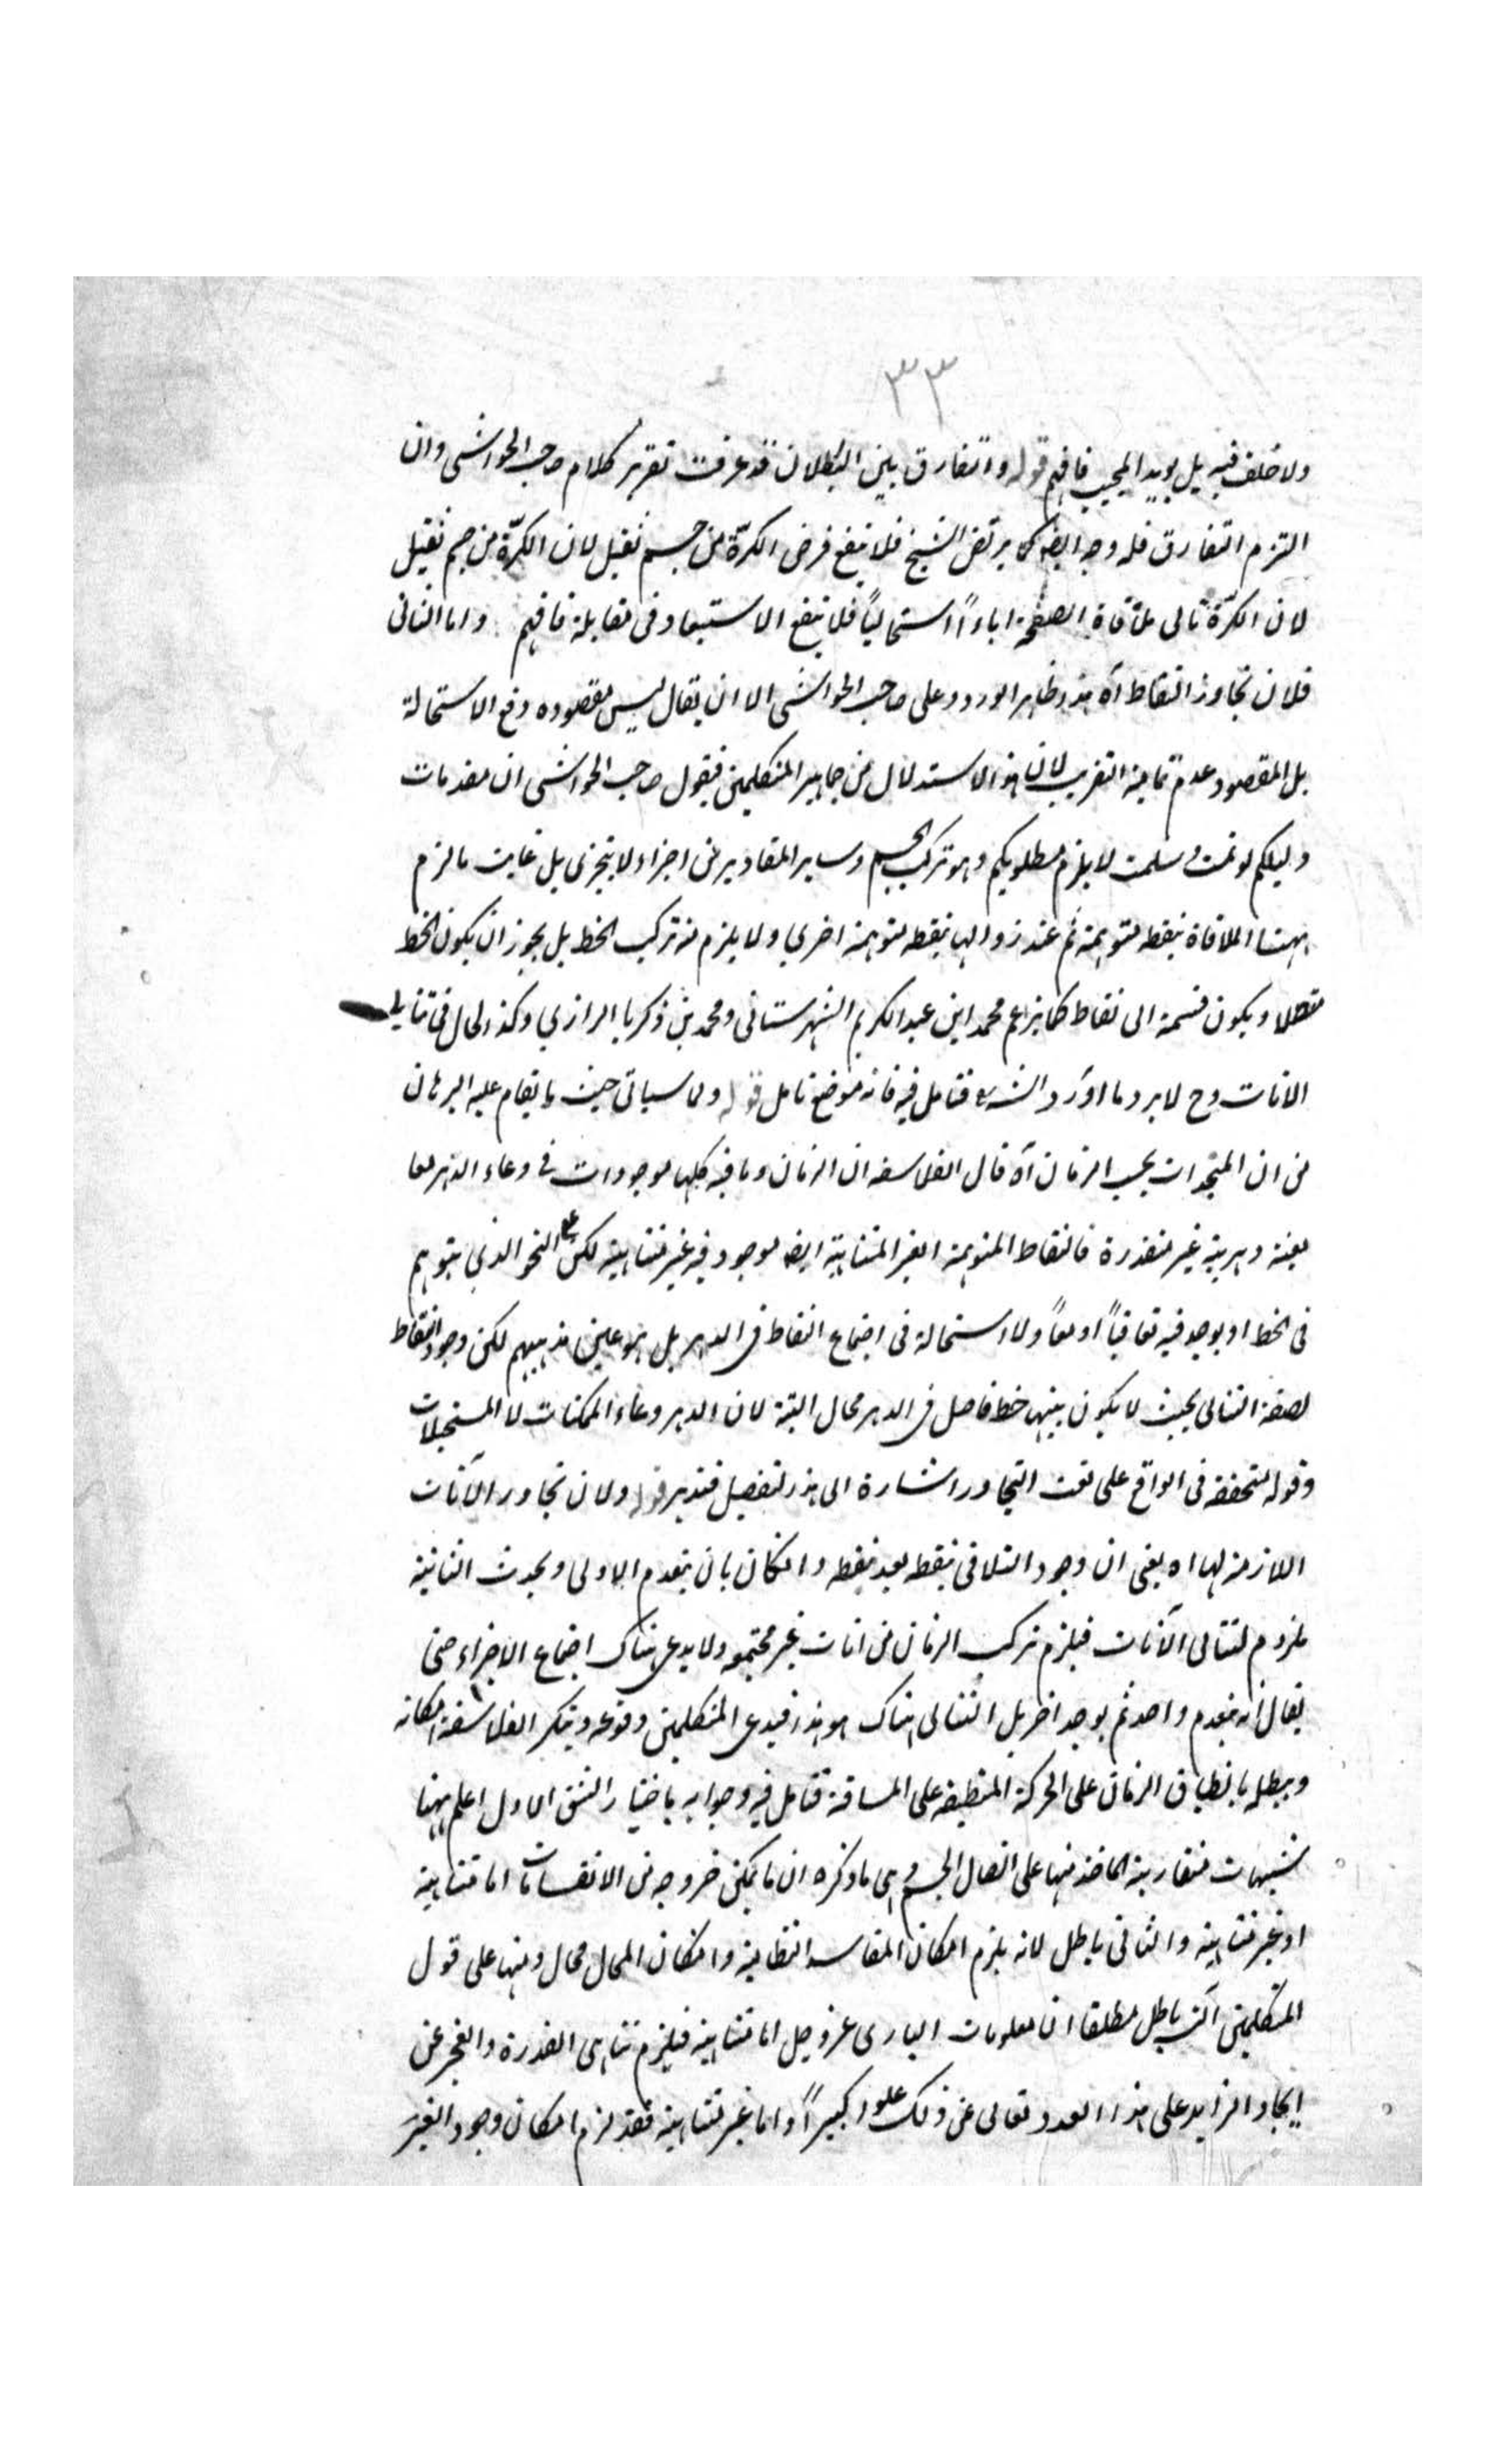 ٣٣
ولا خلف فيه بل يويد المجيب فافهم قوله والتفارق بين البطلان قد عرفت تقرير كلام صاحب الحواشى وان
التزم التفارق فله وجه ايضا كما يرتض الشيخ فلا ينفع فرض الكرة من جسم ثقيل لان الكرة من جسم ثقيل
لان الكرة تابى ملاقاة الصفحة اباءً استحالياً فلا ينفع الاستبعاد فى مقابلة فافهم واما الثانى
فلان تجاوز النقاط آه هذا ظاهر الورود على صاحب الحواشى الا ان يقال ليس مقصوده دفع الاستحالة
بل المقصود عدم تمامية التقريب لان هذا الاستدلال من جماهير المتكلمين فيقول صاحب الحواشى ان مقدمات
دليلكم لو تمت وسلمت لا يلزم مطلوبكم وهو تركب الجسم وساير المقادير من اجزاء لا يتجزى بل غايت ما لزم
ههنا الملاقاة بنقطه متوهمة ثم عند زوالها بنقطه متوهمة اخرى ولا يلزم منه تركب الخط بل يجوز ان يكون الخط
متصلا ويكون قسمة الى نقاط كما يزاعم محمد ابن عبد الكريم الشهرستانى ومحمد بن ذكريا الرازي وكذا الحال فى تتالى
الانات وح لا يرد ما اورد الشه فتامل فيه فانه موضع تامل قوله ولما سياتى حيث يقام عليه البرهان
من ان المتجددات بحسب الزمان آه قال الفلاسفه ان الزمان وما فيه كلها موجودات فى وعاء الدهر معا
معية دهرية غير متقدرة فالنقاط المتوهمة الغير المتناهية ايضا موجود فيه غير متناهية لكن على النحو الذي يتوهم
فى الخط او يوجد فيه تعاقباً او معاً ولا استحالة فى اجتماع النقاط فى الدهر بل هو عين مذهبهم لكن وجود النقاط
لصفة التتالى بحيث لا يكون بينها خط فاصل فى الدهر محال البتة لان الدهر وعاء الممكنات لا المستحيلات
وقوله متحققه فى الواقع على نعت التجاور اشارة الى هذا التفصيل فتدبر قوله ولان تجاور الآنات
اللازمة لها اه يعنى ان وجود التلاقى بنقطه بعد نقطه وان كان بان ينعدم الاولى ويحدث الثانية
ملزوم لتتالى الآنات فيلزم تركب الزمان من انات غير مجتمعه ولا يدعى هناك اجتماع الاجزاء حتى
يقال انه ينعدم واحد ثم يوجد اخر بل التتالى هناك هو هذا فيدعى المتكلمين وقوعه وينكر الفلاسفة امكانه
ويبطله بانطباق الزمان على الحركة المنطبقه على المسافة فتامل فيه وجوابه باختيار الشق الاول اعلم ههنا
شبهات متقاربة الماخذ منها على اتصال الجسم وهى ما ذكره ان ما يمكن خروجه من الانقسامات اما متناهية
او غير متناهية والثانى باطل لانه يلزم امكان المفاسد النظامية وامكان المحال محال ومنها على قول
المتكلمين باطل مطلقا ان معلومات البارى عز وجل اما متناهية فيلزم تناهى القدرة والعجز عن
ايجاد الزايد على هذا العدد تعالى عن ذلك علوا كبيراً واما غير متناهية فقد لزم امكان وجود الغير